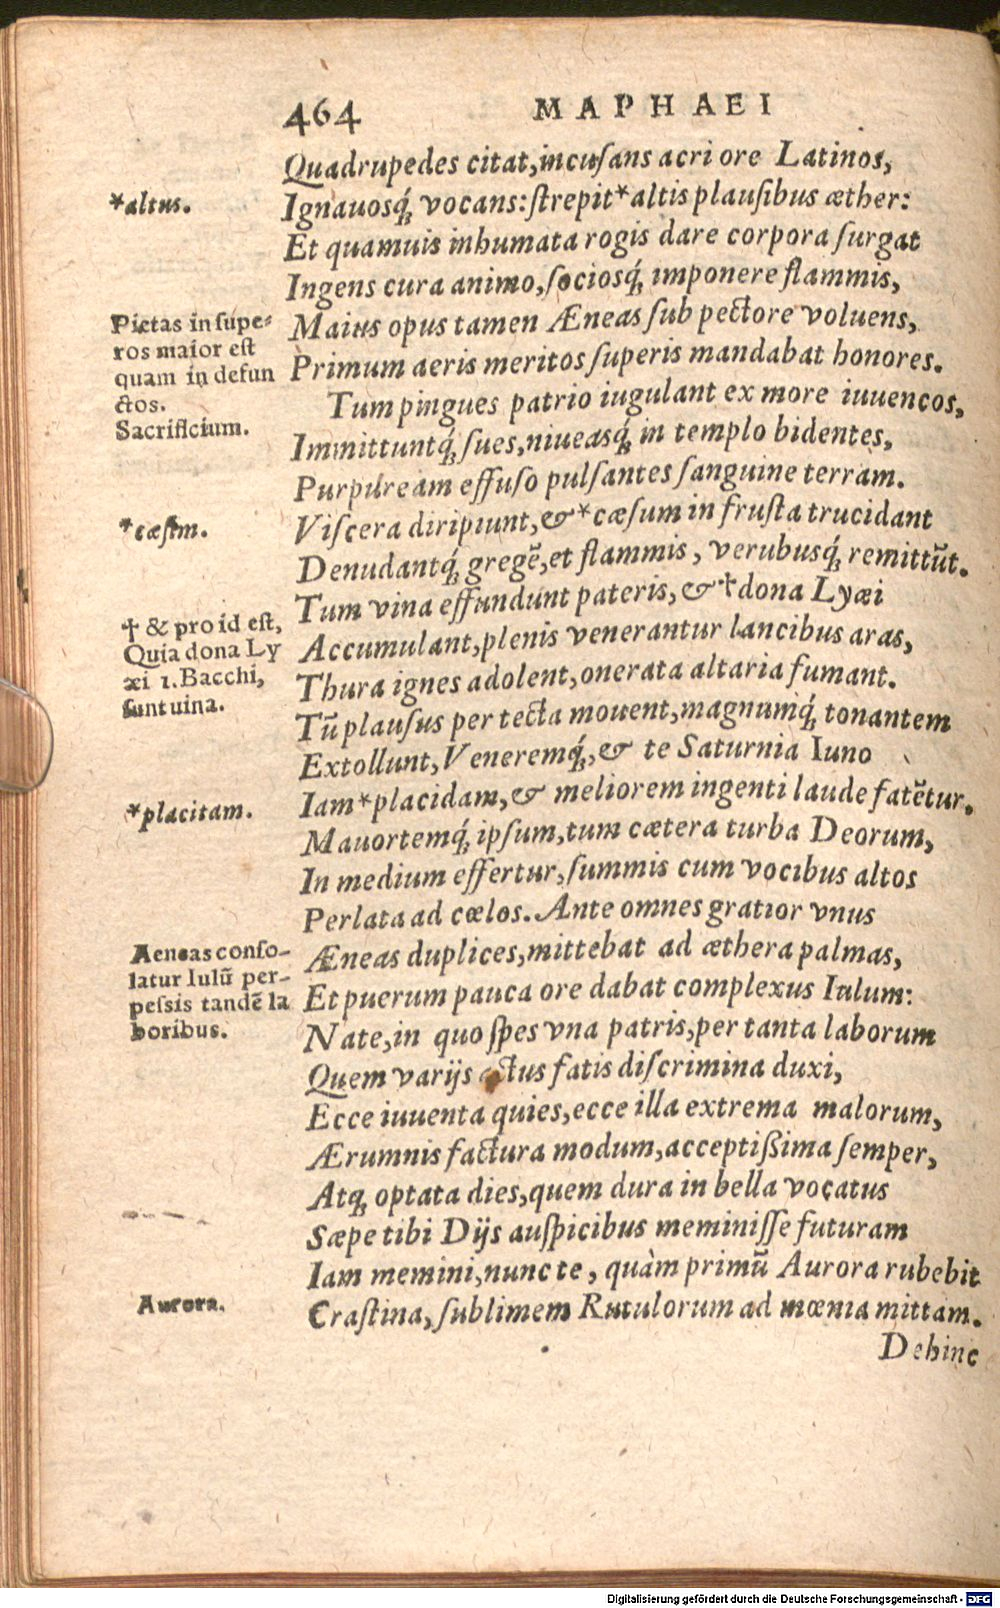 464 MAPHAEI
Quadrupedes citat, incuſans acri ore Latinos,
*altus.
Ignauosq́ꝫ vocans: ſtrepit *altis plauſibus æther:
Et quamuis inhumata rogis dare corpora ſurgat
Ingens cura animo, ſociosq́ꝫ imponere flammis,
Pietas in ſupe-
ros maior eſt
quam in defun
ctos.
Sacrificium.
Maius opus tamen Æneas ſub pectore voluens,
Primum aeris meritos ſuperis mandabat honores.
Tum pingues patrio iugulant ex more iuuencos,
Immittuntq́ꝫ ſues, niueasq́ꝫ in templo bidentes,
Purpuream effuſo pulſantes ſanguine terram.
*cæſim.
Viſcera diripiunt, & *cæſum in fruſta trucidant
Denudantq́ꝫ gregẽ, et flammis, verubusq́ꝫ remittũt.
Tum vina effundunt pateris, & †dona Lyæi
† & pro id eſt,
Quia dona Ly
æi 1. Bacchi,
ſunt uina.
Accumulant, plenis venerantur lancibus aras,
Thura ignes adolent, onerata altaria fumant.
Tũ plauſus per tecta mouent, magnumq́ꝫ tonantem
Extollunt, Veneremq́ꝫ, & te Saturnia Iuno
*placitam.
Iam *placidam, & meliorem ingenti laude fatẽtur.
Mauortemq́ꝫ ipſum, tum cætera turba Deorum,
In medium effertur, ſummis cum vocibus altos
Perlata ad cœlos. Ante omnes gratior vnus
Aeneas conſo-
latur Iulũ per-
peſsis tandẽ la
boribus.
Æneas duplices, mittebat ad æthera palmas,
Et puerum pauca ore dabat complexus Iulum:
Nate, in quo ſpes vna patris, per tanta laborum
Quem varijs actus fatis diſcrimina duxi,
Ecce iuuenta quies, ecce illa extrema malorum,
Ærumnis factura modum, acceptißima ſemper,
Atqꝫ optata dies, quem dura in bella vocatus
Sæpe tibi Dijs auſpicibus meminiſſe futuram
Iam memini, nunc te, quàm primũ Aurora rubebit
Aurora.
Craſtina, ſublimem Rutulorum ad mœnia mittam.
Dehinc
Digitalisierung gefördert durch die Deutsche Forschungsgemeinschaft - DFG